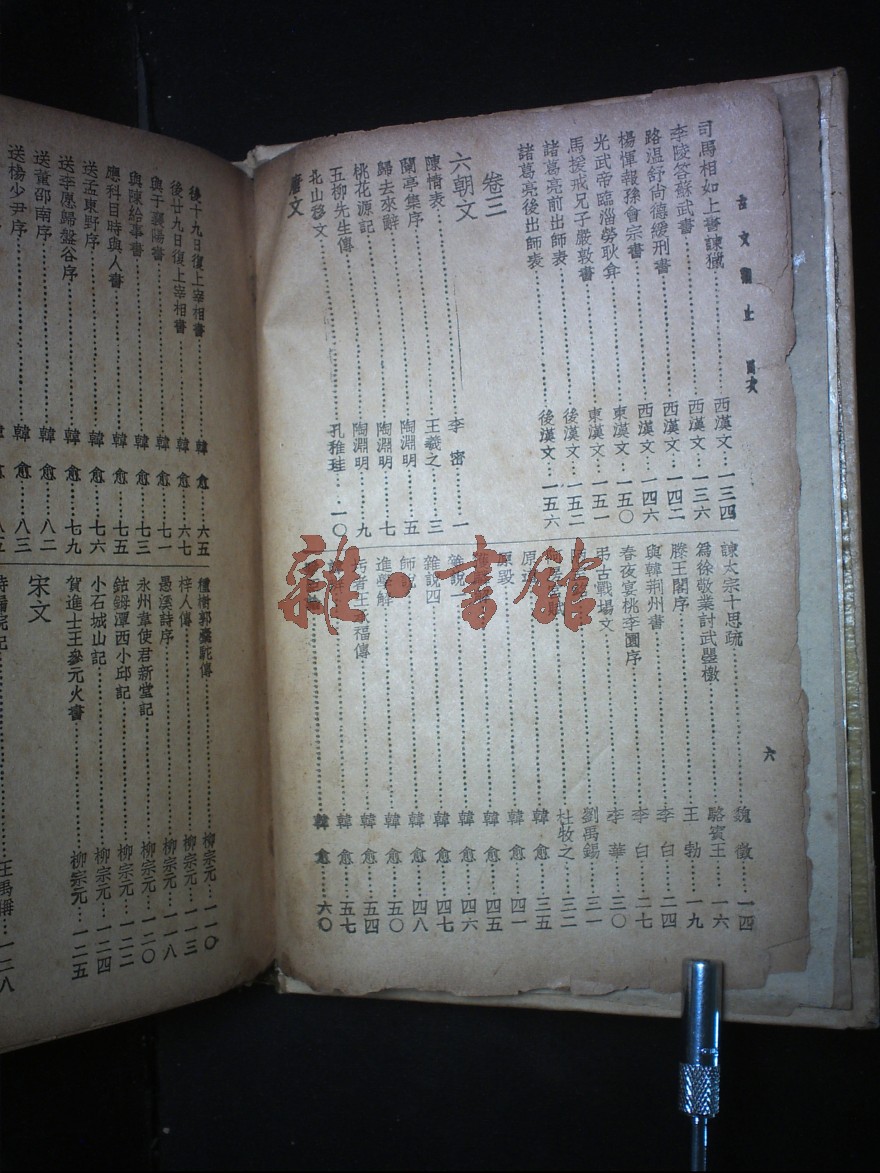 古文觀止 目次
司馬相如上書諫獵 西漢文 一三四
李陵答蘇武書 西漢文 一三六
路温舒尚德緩刑書 西漢文 一四二
楊惲報孫會宗書 西漢文 一四六
光武帝臨淄勞耿弇 東漢文 一五〇
馬援戒兄子嚴敦書 東漢文 一五一
諸葛亮前出師表 後漢文 一五二
諸葛亮後出師表 後漢文 一五六
卷三
六朝文
陳情表 李密 一
蘭亭集序 王羲之 三
歸去來辭 陶淵明 五
桃花源記 陶淵明 七
五柳先生傳 陶淵明 九
北山移文 孔稚珪 一〇
唐文
諫太宗十思疏 魏徵 一四
爲徐敬業討武曌檄 駱賓王 一六
滕王閣序 王勃 一九
與韓荆州書 李白 二四
春夜宴桃李園序 李白 二七
弔古戰場文 李華 三〇
劉禹錫 三一
杜牧之 三二
原 韓愈 三五
原毀 韓愈 四一
韓愈 四五
雜說一 韓愈 四六
雜說四 韓愈 四七
師說 韓愈 四八
進學解 韓愈 五〇
圬者王承福傳 韓愈 五四
韓愈 五七
韓愈 六〇
六
後十九日復上宰相書 韓愈 六五
後廿九日復上宰相書 韓愈 六七
與于襄陽書 韓愈 七一
與陳給事書 韓愈 七三
應科目時與人書 韓愈 七五
送孟東野序 韓愈 七六
送李愿歸盤谷序 韓愈 七九
送董邵南序 韓愈 八二
送楊少尹序 韓愈 八三
八五
種樹郭橐駝傳 柳宗元 一一〇
梓人傳 柳宗元 一一三
愚溪詩序 柳宗元 一一八
永州韋使君新堂記 柳宗元 一二〇
鈷鉧潭西小邱記 柳宗元 一二二
小石城山記 柳宗元 一二四
賀進士王參元火書 柳宗元 一二五
宋文
待漏院記 王禹偁 一二八
雜·書館